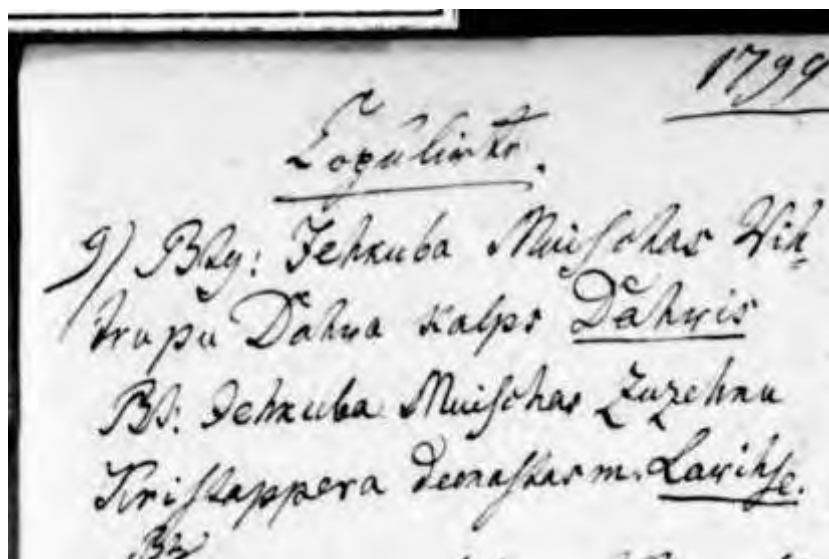 1799
Copulirte.
9) Btg: Jehkuba Muischas Wih-
trupu Dahwa Kalps Dahwis
Bt. Jehkuba Muischas Zuzehnu
Kristappera deenastas m. Lawihse.